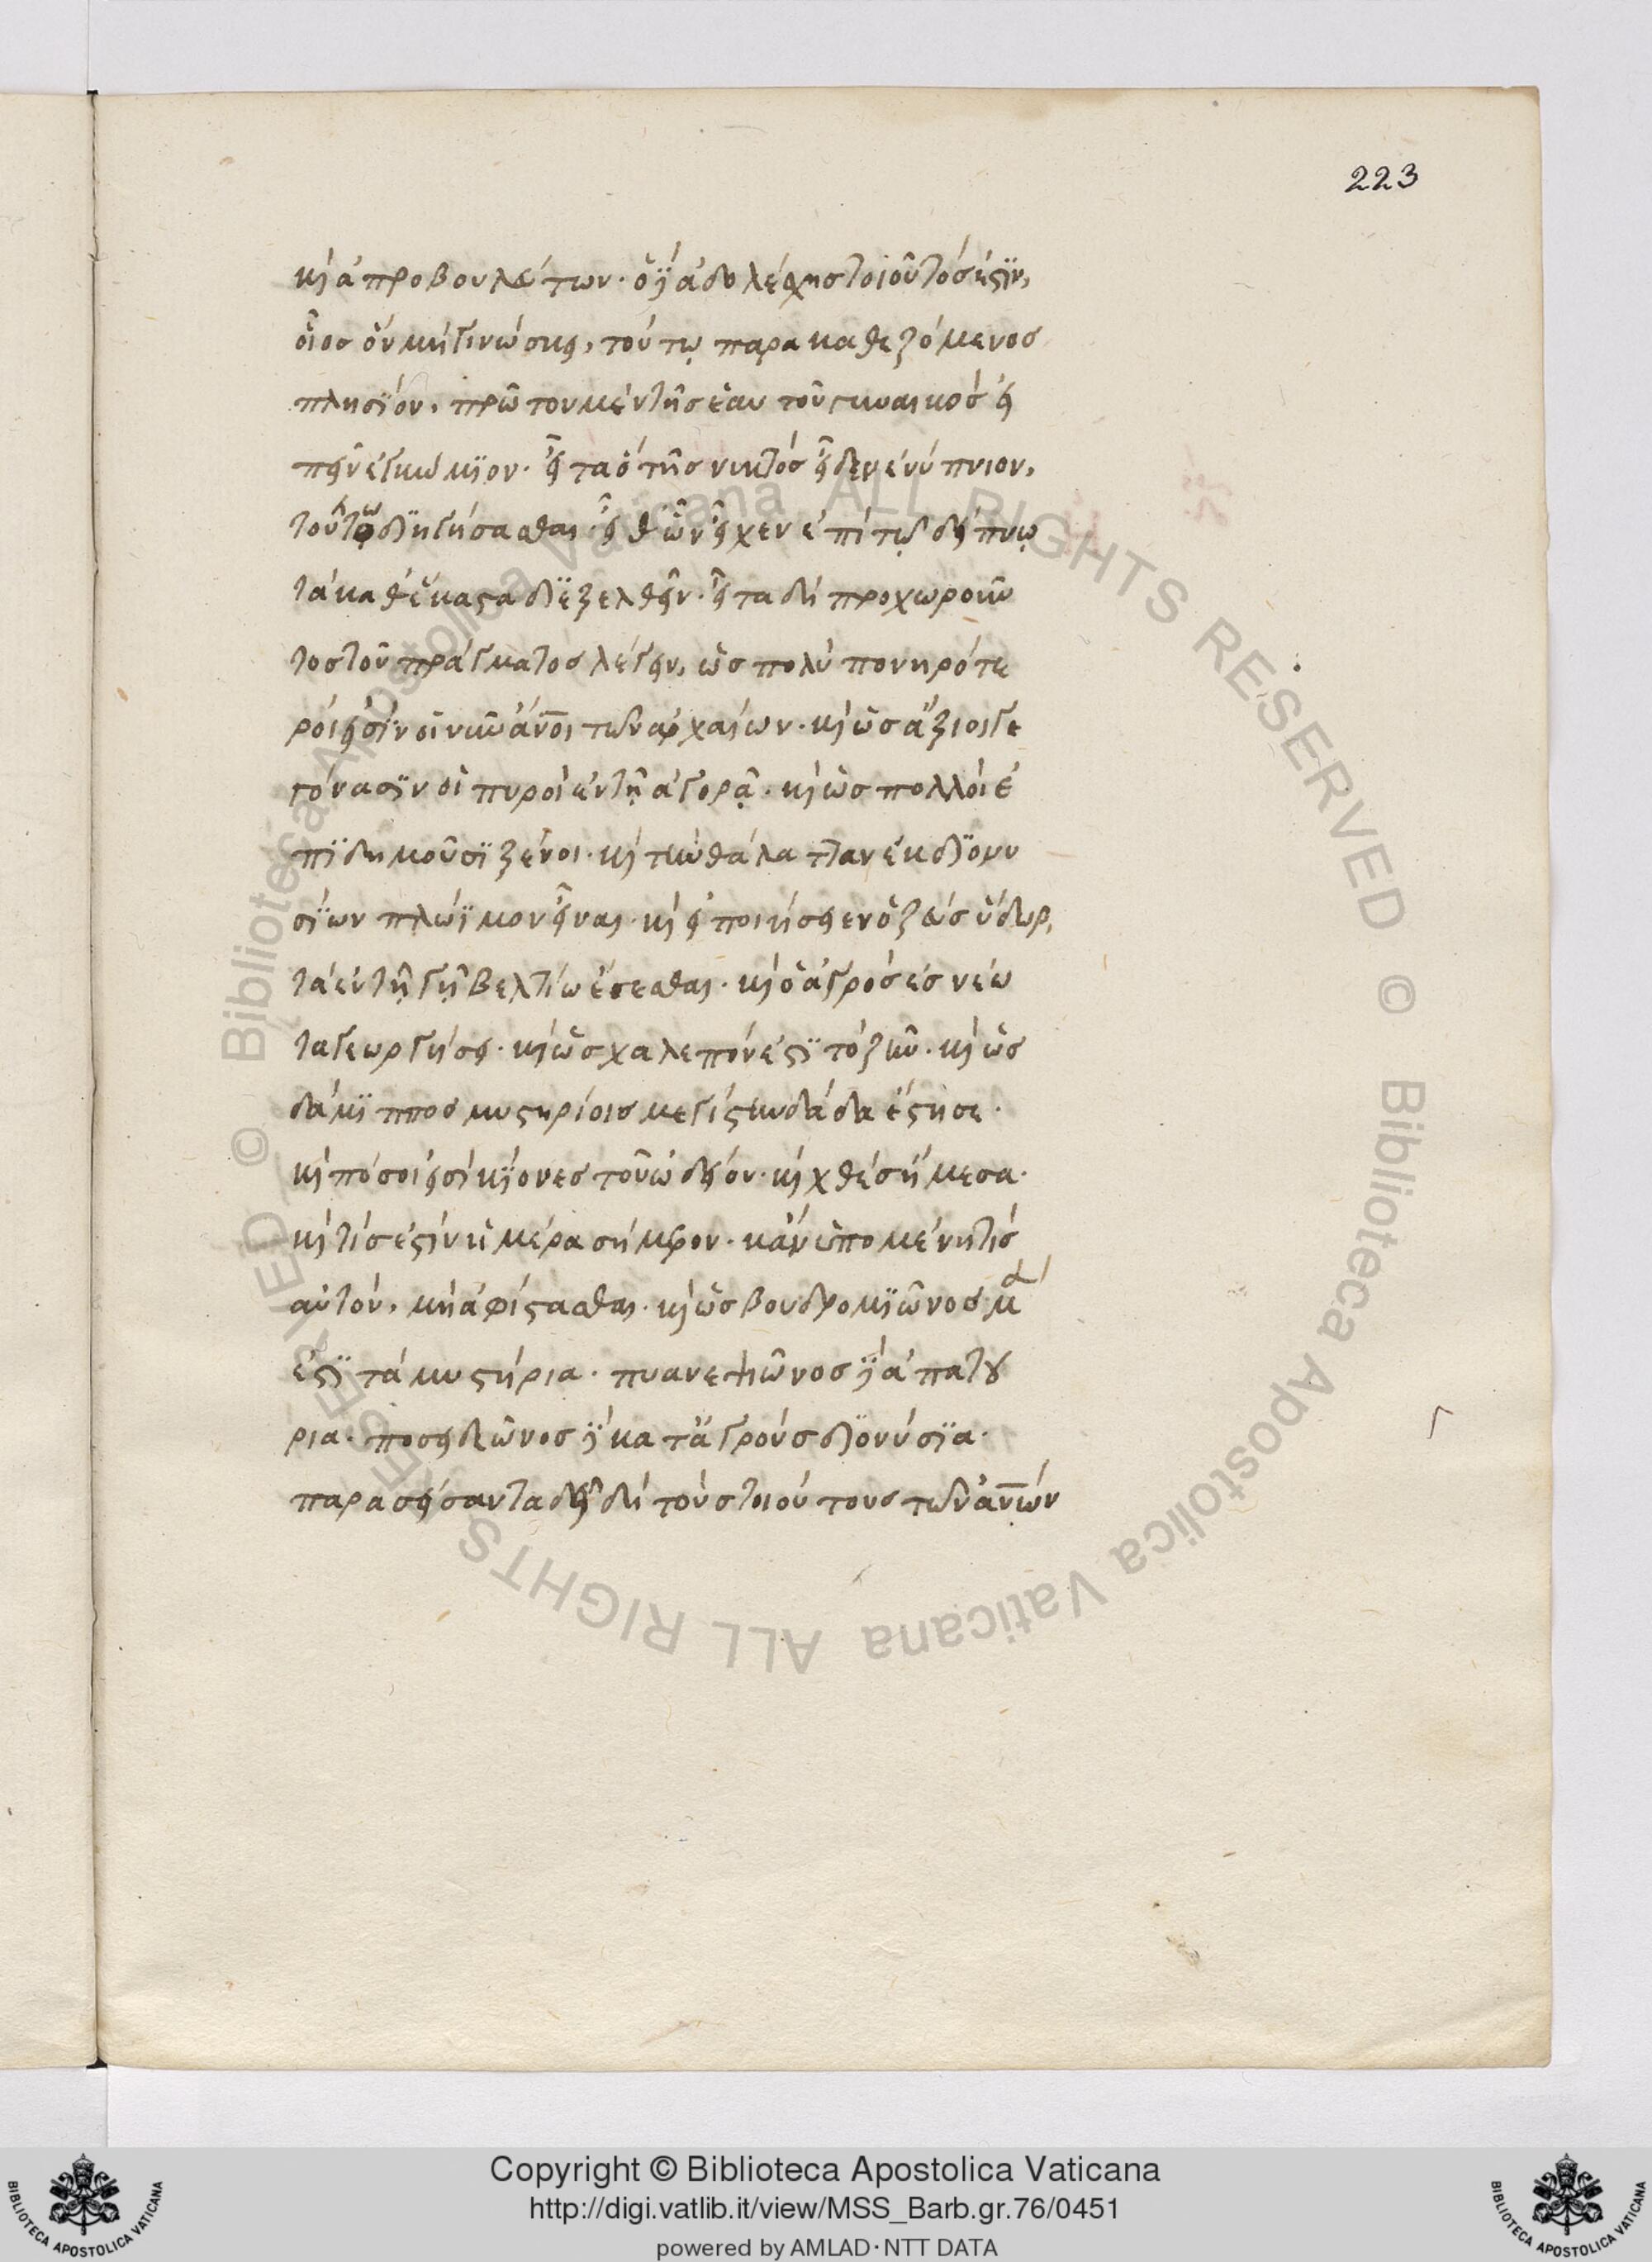 223
κὶ ἀπροβουλεύτων. ὁ δὲ ἀδολέσχης τοιοῦτός ἐστιν,
οἷος ὃν μὴ γινώσκει, τούτῳ παρακαθεζόμενος
πλησίον, πρῶτον μὲν τῆς ἑαυτοῦ γυναικὸς εἰ
πεῖν ἐγκώμιον. εἶτα ὃ τῆς νυκτὸς εἶδεν ἐνύπνιον,
τοῦτο διηγήσασθαι. εἶθ' ὧν εἶχεν ἐπὶ τῷ δείπνῳ
τὰ καθ' ἕκαστα διεξελθεῖν. εἶτα δὴ προχωροῦν
τος τοῦ πράγματος λέγειν, ὡς πολὺ πονηρότε
ροί εἰσιν οἱ νῦν ἄνοι τῶν ἀρχαίων. κὶ ὡς ἄξιοι γε
γόνασιν οἱ πυροὶ ἐν τῇ ἀγορᾷ. κὶ ὡς πολλοὶ ἐ
πιδημοῦσι ξένοι. κὶ τὴν θάλατταν ἐκ διονυ
σίων πλώϊμον εἶναι. κὶ εἰ ποιήσειεν ὁ ζεὺς ὕδωρ,
τὰ ἐν τῇ γῇ βελτίω ἔσεσθαι. κὶ ὁ ἀγρὸς ἐς νέω
τα γεωργήσει. κὶ ὡς χαλεπόν ἐστι τὸ ζῆν. κὶ ὡς
δάμιππος μυστηρίοις μεγίστην δᾷδα ἔστησε.
κὶ πόσοι εἰσὶ κίονες τοῦ ὠδείου. κὶ χθὲς ἤμεσα.
κὶ τίς ἐστὶν ἡμέρα σήμερον. κἂν ὑπομένῃ τις
αὐτόν, μὴ ἀφίστασθαι. κὶ ὡς βουδρομιῶνος μ
ἐστὶ τὰ μυστήρια. πυανεψιῶνος δὲ ἀπατού
ρια. ποσειδεῶνος δὲ κατ' ἀγροὺς διονύσια.
παρασείσαντα δεῖ δὴ τοὺς τοιούτους τῶν ἀνων
Copyright © Biblioteca Apostolica Vaticana
http://digi.vatlib.it/view/MSS_Barb.gr.76/0451
powered by AMLAD · NTT DATA